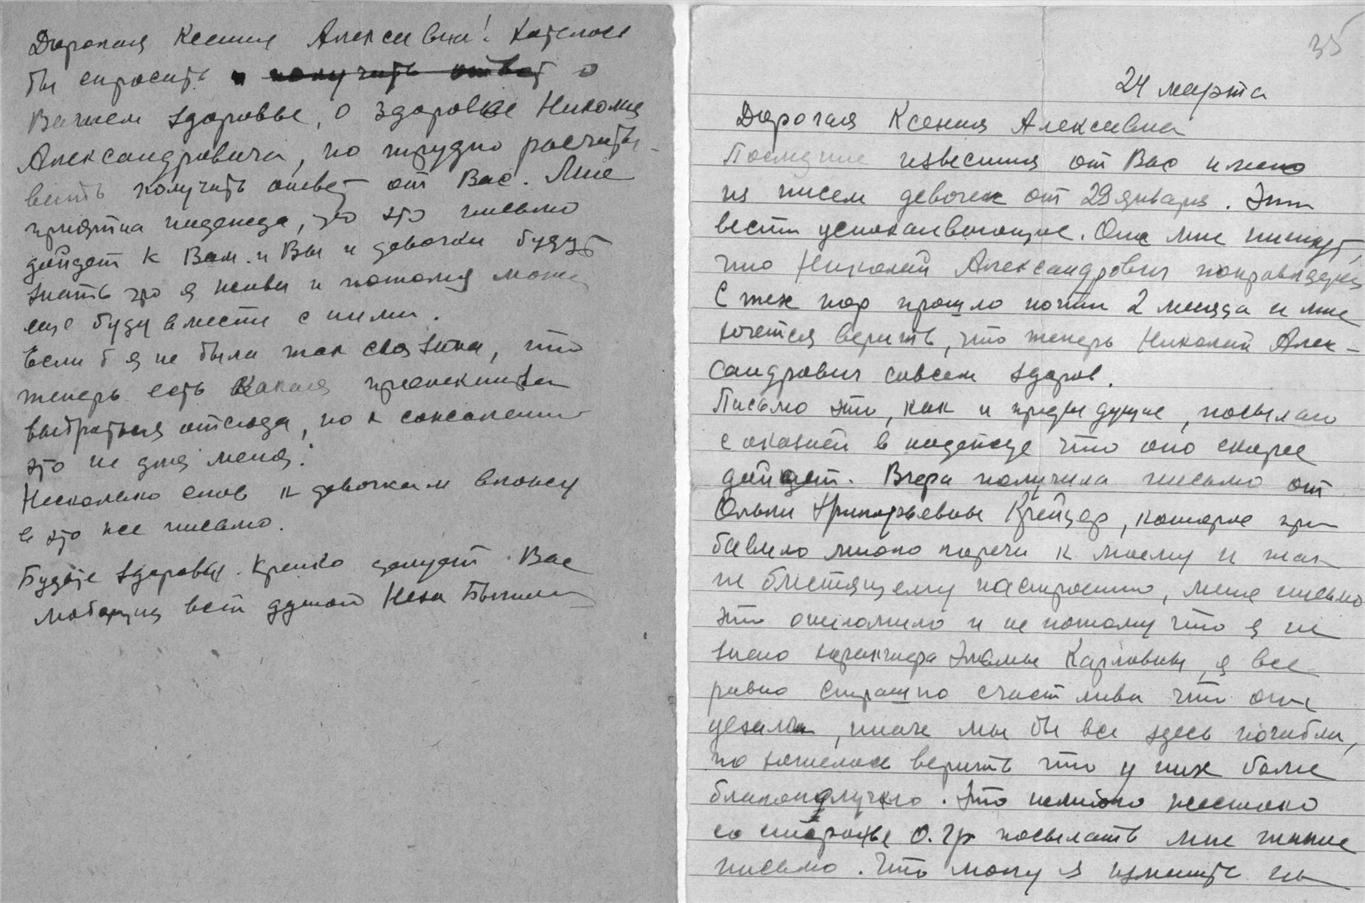 Дорогая Ксения Алексеевна! Хотелось
бы спросить и получить ответ о
Вашем здоровье, о здоровье Николая
Александровича, но трудно расчиты-
вать получить ответ от Вас. Мне
приятна надежда, что это письмо
дойдет к Вам и Вы и девочки будут
знать что я жива и потому может
еще буду вместе с ними.
Если б я не была так связана, то
теперь есть какая
выбраться отсюда, но к сожалению
это не для меня.
Несколько слов к девочкам вложу
в это же письмо.
Будьте здоровы. Крепко целует Вас
любящая всей душой
35
24 марта
Дорогая Ксения Алексеевна
Последние известия от Вас имею
из писем девочек от 29 января. Эти
вести успокаивающие. Они мне пишут,
что Николай Александрович поправляется
С тех пор прошло почти 2 месяца и мне
хочется верить, что теперь Николай Алек-
сандрович совсем здоров.
Письмо это, как и предыдущие, посылаю
с оказией в надежде что оно скорее
дойдет. Вчера получила письмо от
Ольги Григорьевны Крейцер, которое при-
бавило много горечи к моему и так
не блестящему настроению, меня письмо
это ошеломило и не потому что я не
знаю характера Карловны, я все
равно страшно счастлива что они
уехали, иначе мы бы все здесь погибли,
но хотелось верить что у них более
благополучно. Это немного жестоко
со стороны О. Гр посылать мне такие
письмо. Что могу я изменить